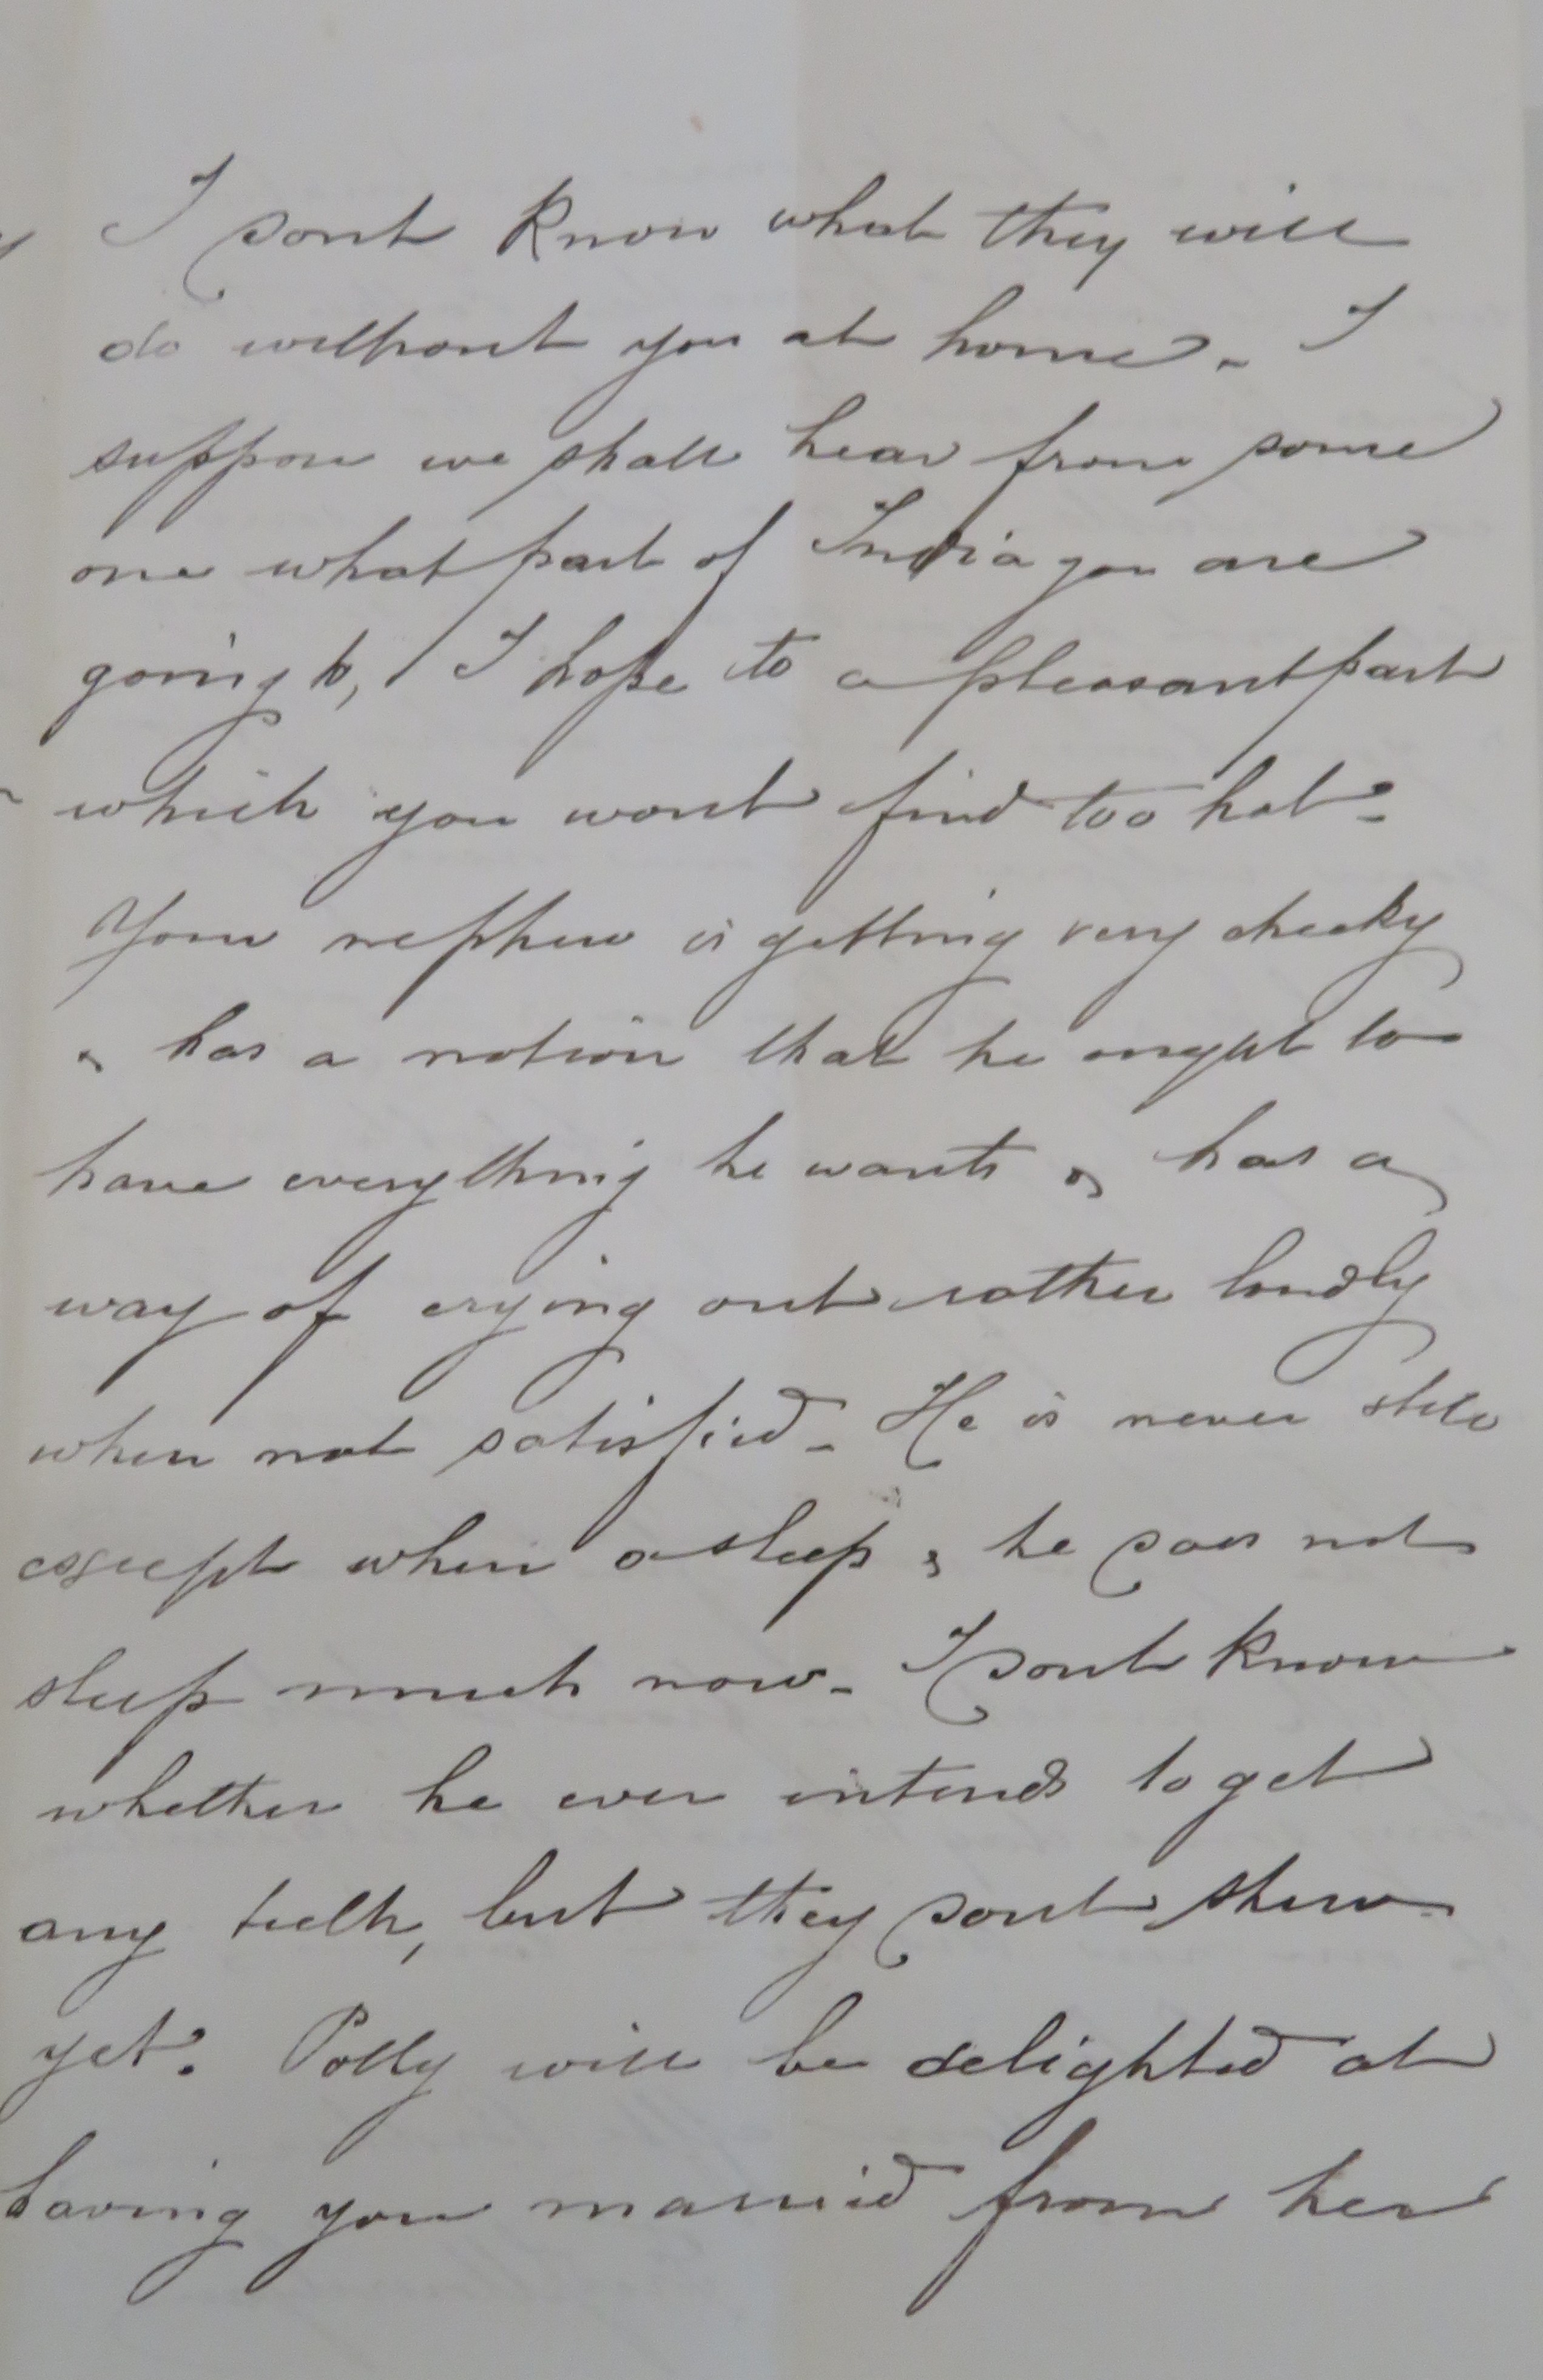 I dont know what they will
do without you at home. I
suppose we shall hear from some
one what part of India you are
going to, I hope to a pleasant part
which you wont find too hot.
Your nephew is getting very cheeky
& has a notion that he ought to
have everything he wants & has a
way of crying out rather loudly
when not satisfied. He is never still
except when asleep & he does not
sleep much now. I dont know
whether he ever intends to get
any teeth, but they dont shew
yet. Polly will be delighted at
having you married from her